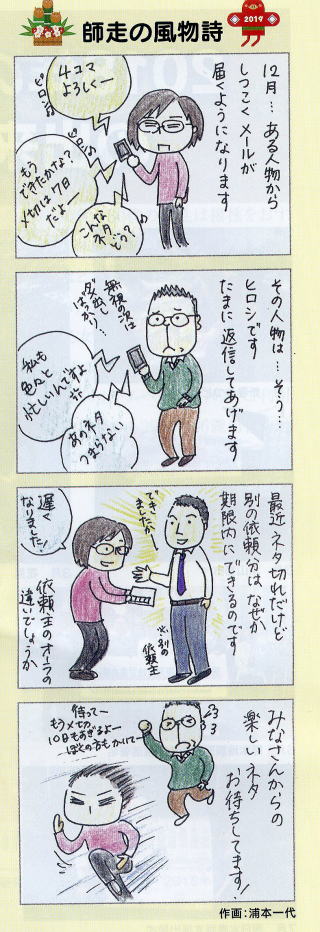 師走の風物詩
2019
12月…ある人物から
しつこくメールが
届くようになります
4コマ
よろしくー
もう
できたかな?
〆切は7日
だよ
こんな
ネタ
どう?
その人物は…そう…
ヒロシです
たまに返信してあげます
無視の次は
ダメ出し
ばっかり…
私も
色々と
忙しいんですよ
あのネタ
つまらない
最近ネタ切れだけど
別の依頼分はなぜか
期限内にできるのです
できましたか
※別の
依頼主
遅く
なりました!
依頼主のオーラの
違いでしょうか
みなさんからの
楽しいネタ
お待ちしてます!
待ってー
もう〆切
10日もすぎるよー
ぽとの方もかいてー
作画:浦本一代